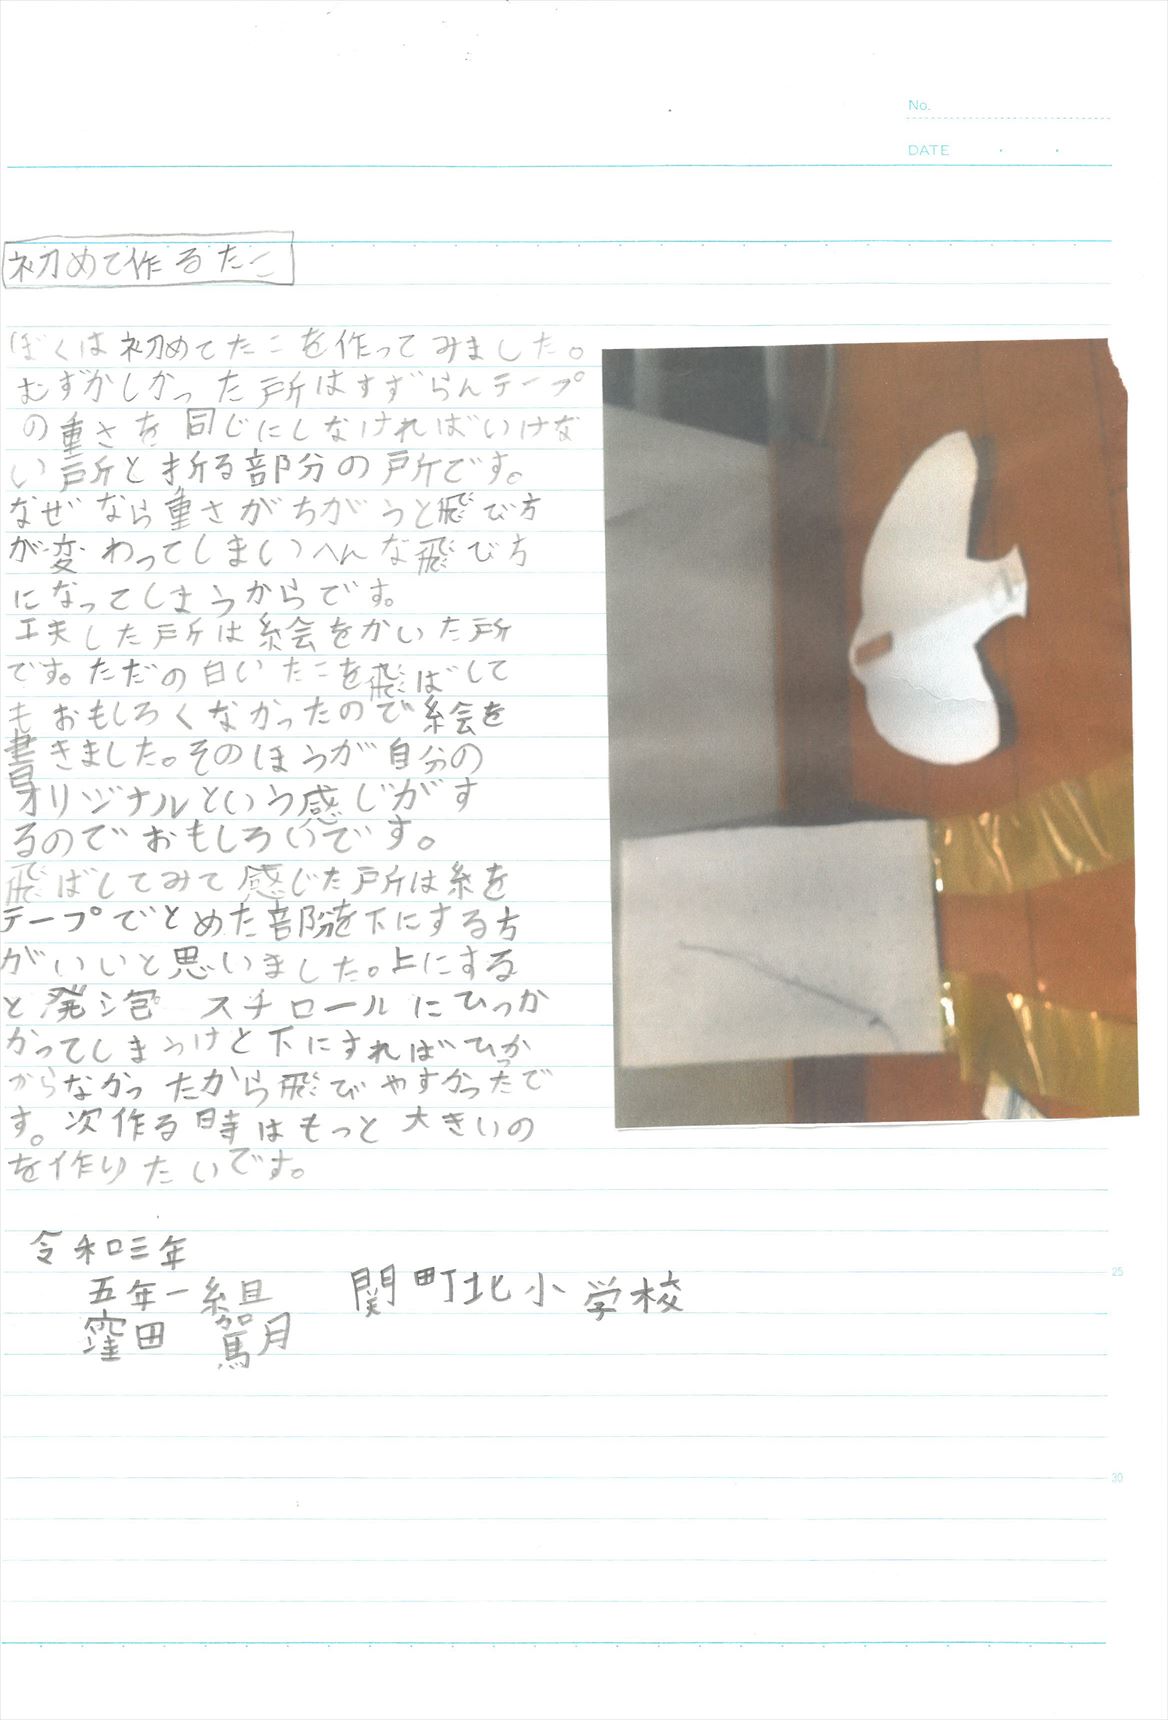 No.
DATE
初めて作るたこ
ぼくは初めてたこを作ってみました。
むずかしかった所はすずらんテープ
の重さを同じにしなければいけな
い所と折る部分の所です。
なぜなら重さがちがうと飛び方
が変わってしまいへんな飛び方
になってしまうからです。
工夫した所は絵をかいた所
です。ただの白いたこを飛ばして
もおもしろくなかったので絵を
書きました。そのほうが自分の
オリジナルという感じがす
るのでおもしろいです。
飛ばしてみて感じた所は糸を
テープでとめた部分を下にする方
がいいと思いました。上にする
と発泡スチロールにひっか
かってしまうけど下にすればひっか
からなかったから飛びやすかったで
す。次作る時はもっと大きいの
を作りたいです。
令和三年
五年一組 関町北小学校
窪田 駕月
25
30